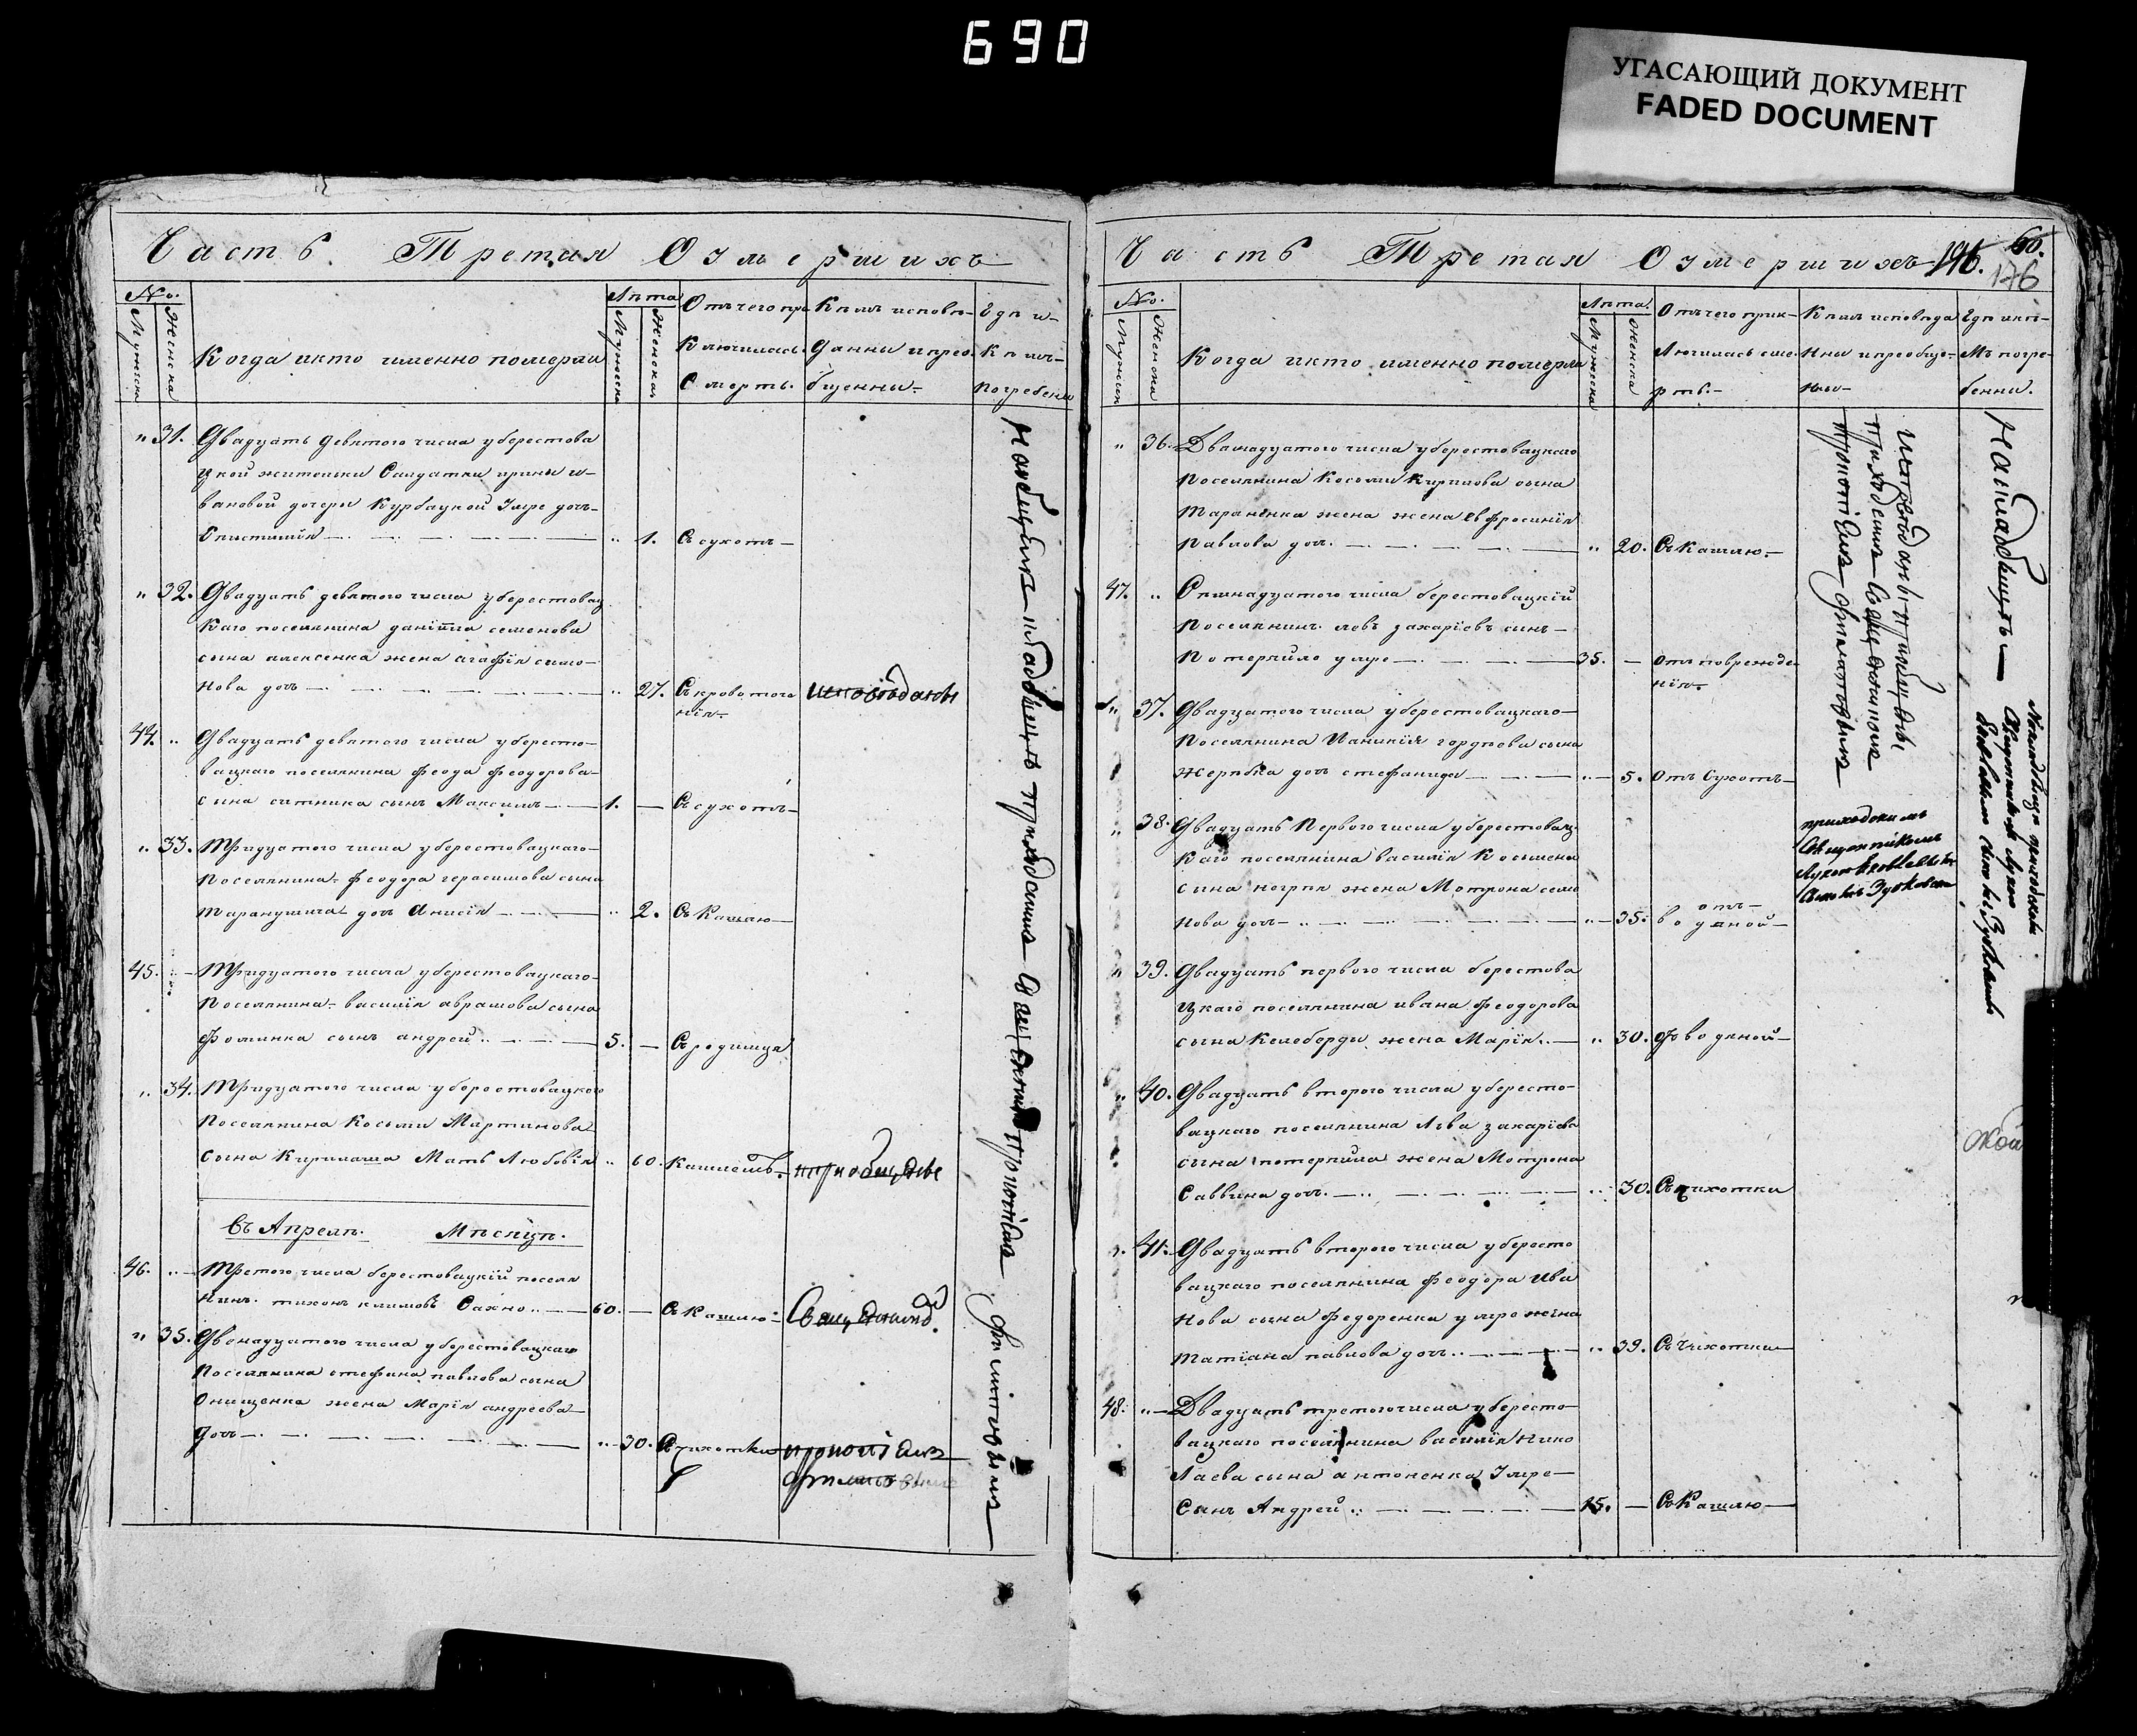 690
УГАСАЮЩИЙ ДОКУМЕНТ
FADED DOCUMENT
Часть Третая О умершихъ
No.
Мужеска
Женска
Когда икто именно померли
Лѣта
Мужеска
Женска
Отъ чего при
ключилась
Смерть.
Кѣмъ исповѣ-
данны ипрео
бщенны-
Гдѣ и-
кѣмъ-
погребены
" 31. Двадцать девятого числа уберестова
цкой жительки Салдатки ирины и-
вановой дочеры Курбацкой Умре дочь
Епистимія 1. Съ сухотъ-
" 32. Двадцать девятого числа уберестовац
каго поселянина даніила семенова
сына алексенка жена агафія симо-
нова дочь 27. Съ кровоточе
нія- исповѣданы
44. " Двадцать девятого числа убересто-
вацкаго поселянина феода феодорова-
сына ситника сынъ Максимъ 1. Съ сухотъ-
" 33. Тридцатого числа уберестовацкаго-
поселянина феодора герасимова сына
таранущича дочь Анисія 2. Съ Кашлю-
45. Тридцатого числа уберестовацкаго-
поселянина василія аврамова сына
фоминка сынъ андрей 5. Съ родимца
" 34. Тридцатого числа уберестовацкого
поселянина Косьми Мартинова
сына Кирилаша Мать Любовія 60. Кашлемъ- приобщены
Въ Апрелѣ. Мѣсяцѣ.
46. Третого числа берестовацкій поселя
нинъ тихонъ климовъ Сахно 60. Съ Кашлю- Священникъ
" 35. Двонадцатого числа уберестовацкаго
поселянина стефана павлова сына
Онищенка жена Марія андреева
дочь 30. Съ чихотки протоіемъ
Наобщемъ кладбищѣ приходскимъ Священикомъ
Часть Третая О умершихъ
196. 66.
176
No.
Мужеска
Женска
Когда икто именно померли
Лѣта.
Мужеска
Женска
Отъ чего прик-
лючилась сме-
рть.-
Кѣмъ исповѣда
ны ипреобще-
ны-
Гдѣ икѣ-
мъ погре-
бенны.
" 36. Дванадцатого числа уберестовацкаго
поселянина Косьми Кирилова сына
Тараненка жена жена евфросинія
Павлова дочь. 20. Съ Кашлю.
47. " Сѣмнадцатого числа берестовацкій
поселянинъ левъ захаріевъ синъ-
Потеряйло умре 35. Отъ поврежде
нія.
" 37. Двадцатого числа уберестовацкаго-
поселянина Ианикія гордѣева сына
жеребка дочь стефанида 5. Отъ Сухотъ-
" 38. Двадцать Первого числа уберестовац-
каго поселянина василія Косьмена
сына жена Мотрона семе
нова дочь 35. отъ-
водяной-
" 39. Двадцать первого числа берестова
цкаго поселянина ивана феодорова
сына Келеберды жена Марія 30. Отъ водяной-
" 40. Двадцать второго числа убересто-
вацкаго поселянина Лѣва захаріева
сына потеряйла жена Мотрона
Саввина дочь 30. Съ чихотки
" 41. Двадцать второго числа убересто
вацкаго поселянина феодора Ива
нова сына федоренка умре жена
татіана павлова дочь 39. Съ Чихотки
48. Двадцать третого числа убересто-
вацкаго поселянина василія нико
лаева сына антоненка Умре-
Сынъ Андрей 15. Съ Кашлю-
исповѣданы приобщены
приходскимъ Священикомъ
Накладбищѣ
приходскимъ
Священикомъ
Лукою Яковлевымъ